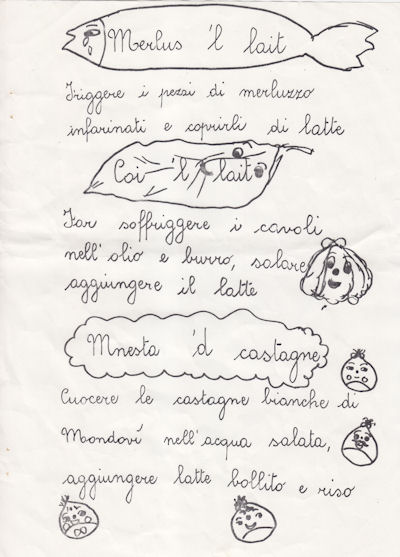 Merlus 'l lait
Friggere i pezsi di merluzzo
infarinati e coprirli di latte
Coi 'l lait
Far soffriggere i cavoli
nell'olio e burro, salare
aggiungere il latte
Mnesta 'd castagne
Cuocere le castagne bianche di
Mondovì nell'acqua salata,
aggiungere latte bollito e riso